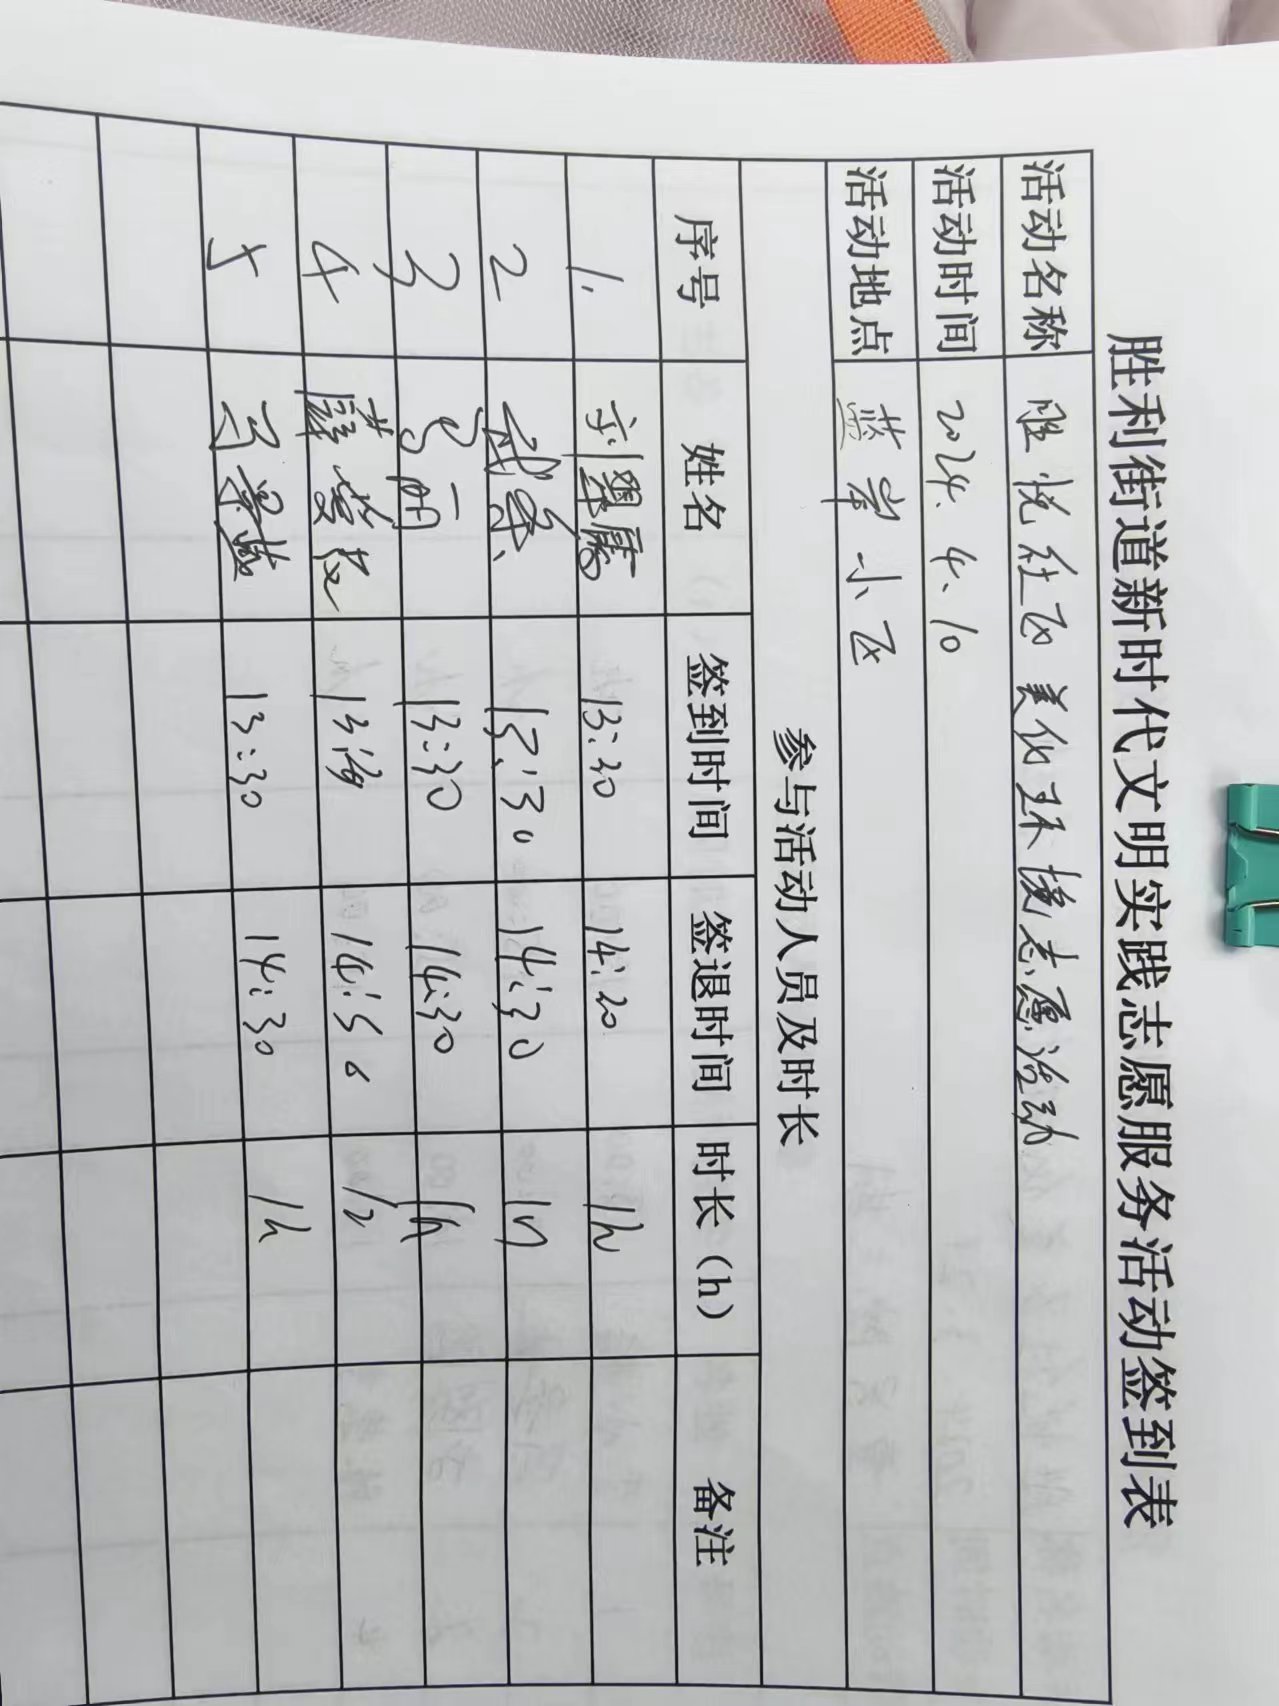 胜利街道新时代文明实践志愿服务活动签到表
活动名称 胜悦社区美化环境志愿活动
活动时间 2024.4.10
活动地点 蓝岸小区
参与活动人员及时长
序号 姓名 签到时间 签退时间 时长（h） 备注
1. 刘翠 13:30 14:20 1h
2 13:30 14:30 1h
3 马明 13:30 14:30 1h
4 薛 14:50
5 13:30 14:30 1h